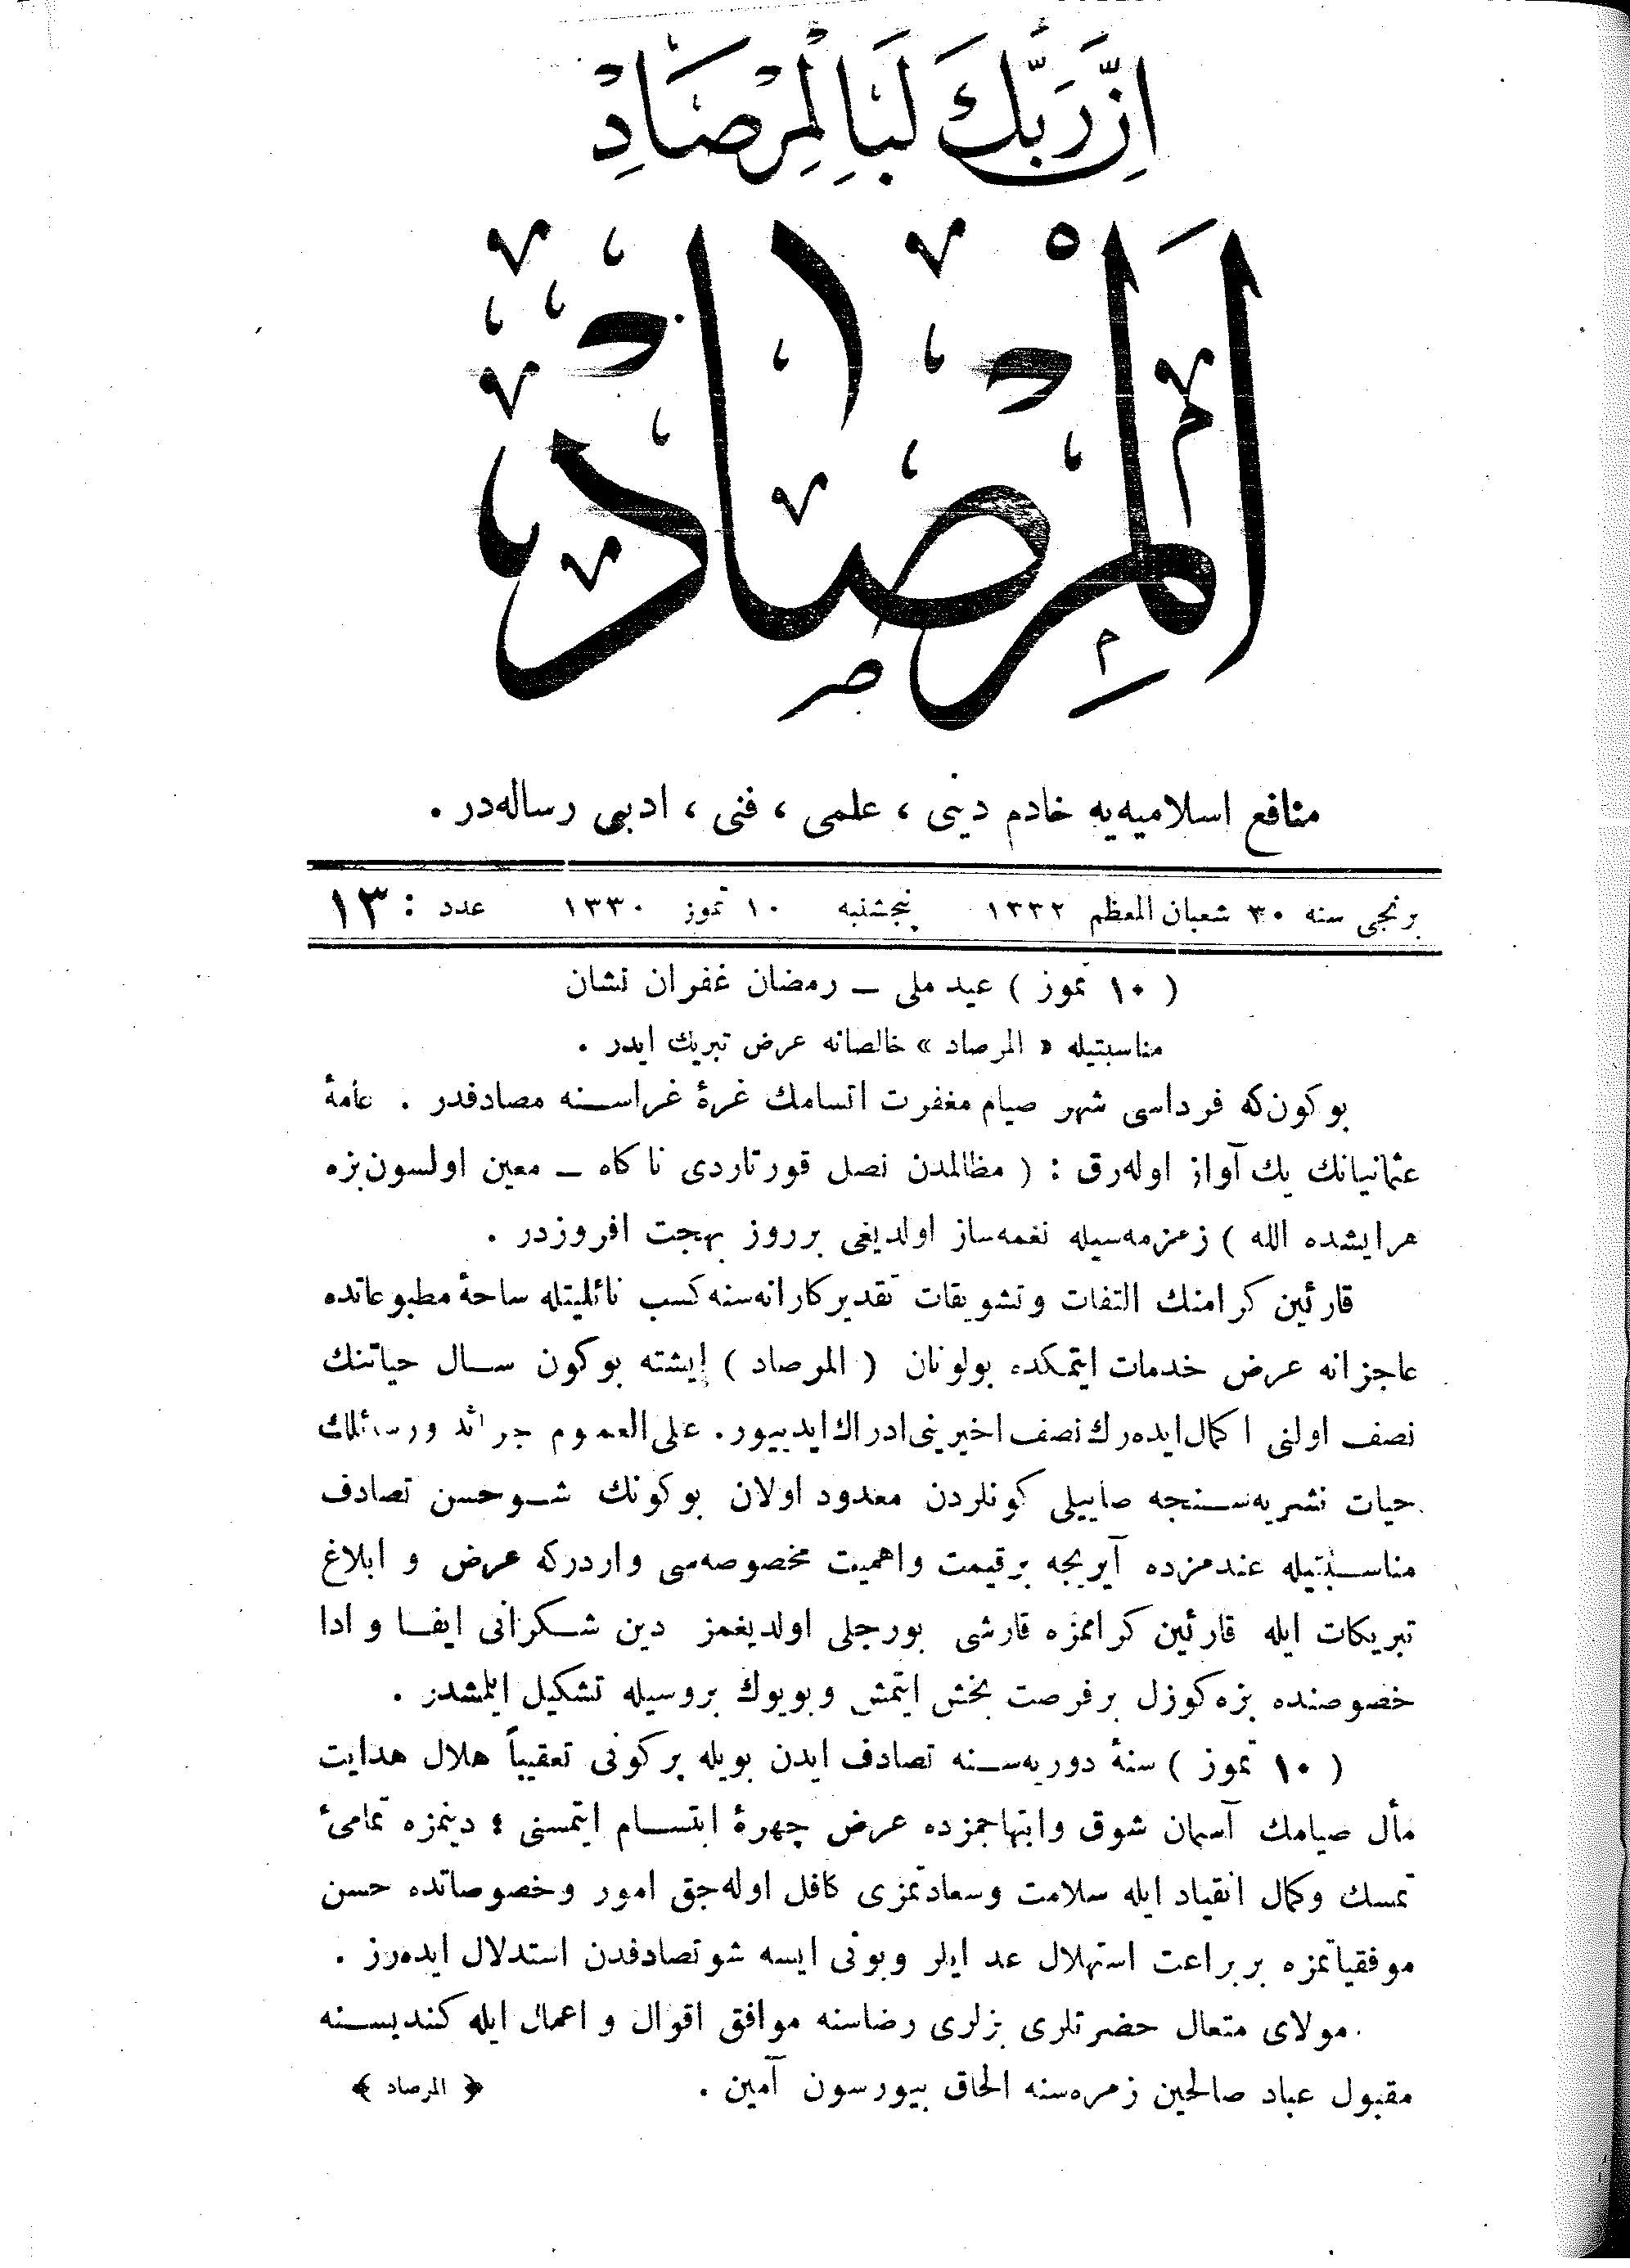 اِنَّ رَبَّكَ لَبَا لْمِرْصَادِ
اَلْمِرْصَاد
منافع اسلاميه‌يه خادم دينى ، علمى ، فنى ، ادبى رساله‌در .
برنجى سنه ٣٠ شعبان المعظم ١٣٣٢ پنجشنبه ١٠ تموز ١٣٣٠ عدد : ١٣
( ١٠ تموز ) عيد ملى — رمضان غفران نشان
مناسبتيله « المرصاد » خالصانه عرض تبريك ايدر .
بوكون‌كه فرداسى شهر صيام مغفرت اتسامك غرهٔ غراسنه مصادفدر . عامهٔ
عثمانيانك يك آواز اوله‌رق : ( مظالمدن نصل قورتاردى ناكاه — معين اولسون بزه
هرايشده الله ) زمزمه‌سيله نغمه‌ساز اولديغى برروز بهجت افروزدر .
قارئين كرامنك التفات وتشويقات تقديركارانه‌سنه كسب نائليتله ساحهٔ مطبوعاتده
عاجزانه عرض خدمات ايتمكده بولونان ( المرصاد ) ايشته بوكون سال حياتنك
نصف اولنى اكمال ايده‌رك نصف اخيرينى ادراك ايدييور . على العموم جرائد ورسائلك
حيات نشريه‌سنجه صاييلى كونلردن معدود اولان بوكونك شو حسن تصادف
مناسبتيله عندمزده آيريجه برقيمت واهميت مخصوصه‌سى واردركه عرض و ابلاغ
تبريكات ايله قارئين كرامزه قارشى بورجلى اولديغمز دين شكرانى ايفا و ادا
خصوصنده بزه كوزل برفرصت بخش ايتمش وبويوك بروسيله تشكيل ايلمشدر .
( ١٠ تموز ) سنهٔ دوريه‌سنه تصادف ايدن بويله بركونى تعقيباً هلال هدايت
مأل صيامك آسمان شوق وابتهاجمزده عرض چهرهٔ ابتسام ايتمسنى ؛ دينمزه تمامىٔ
تمسك وكمال انقياد ايله سلامت وسعادتمزى كافل اوله‌جق امور وخصوصاتده حسن
موفقياتمزه بربراعت استهلال عد ايلر وبونى ايسه شو تصادفدن استدلال ايده‌رز .
مولاى متعال حضرتلرى بزلرى رضاسنه موافق اقوال و اعمال ايله كنديسنه
مقبول عباد صالحين زمره‌سنه الحاق بيورسون آمين . ﴿ المرصاد ﴾